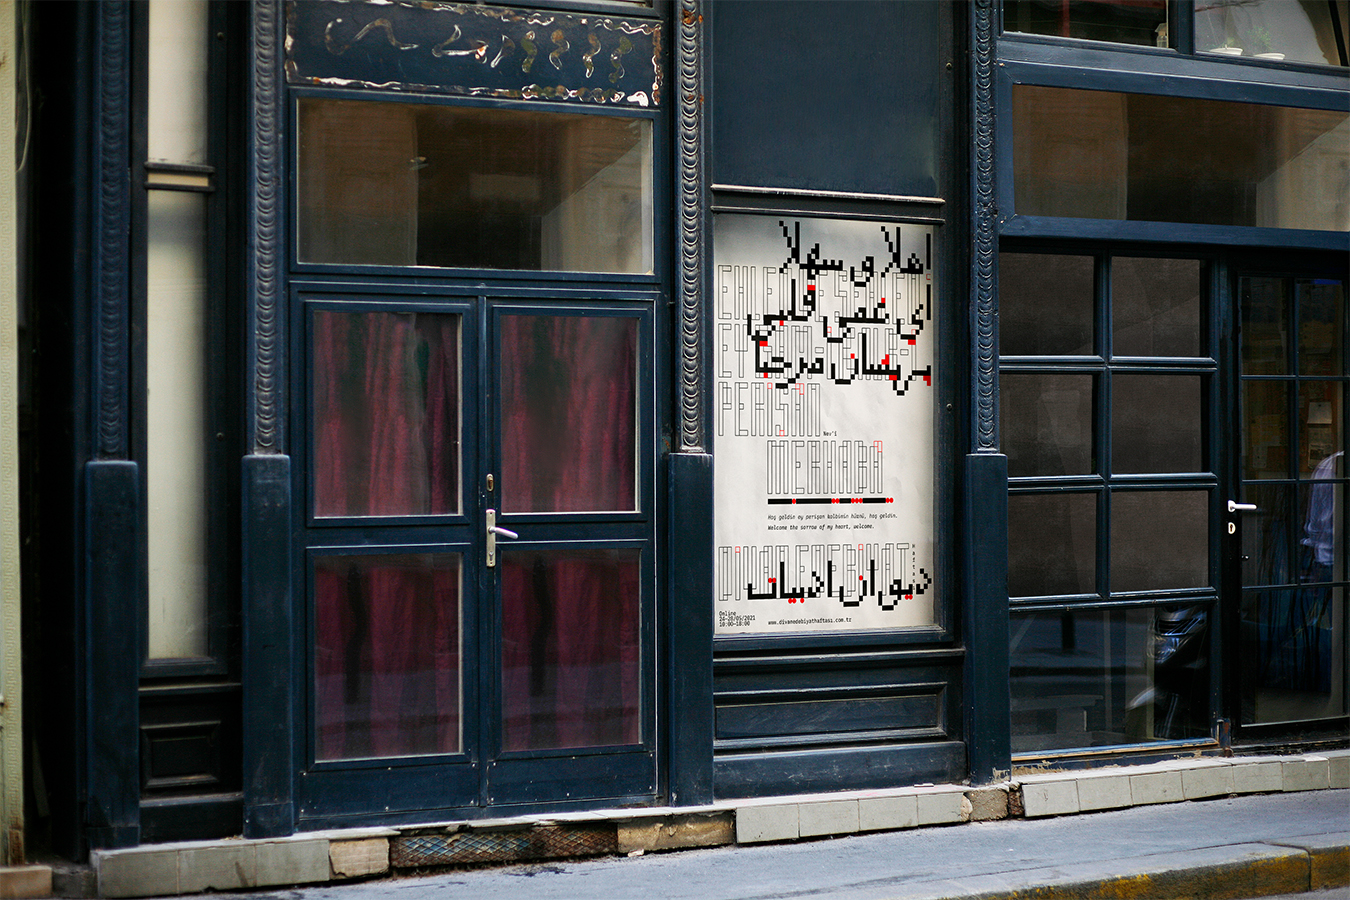 اهلا و سهلا
EHLEN VE SEHLEN
ای غمی قلبی
EY
پریشان مرحبا
PERİŞAN
Nev'î
MERHABA
Hoş geldin ey perişan kalbimin hüznü, hoş geldin.
Welcome the sorrow of my heart, welcome.
DİVAN EDEBİYAT
ديوان ادبيات
Online
24-28/05/2021
10:00-18:00
www.divanedebiyathaftası.com.tr